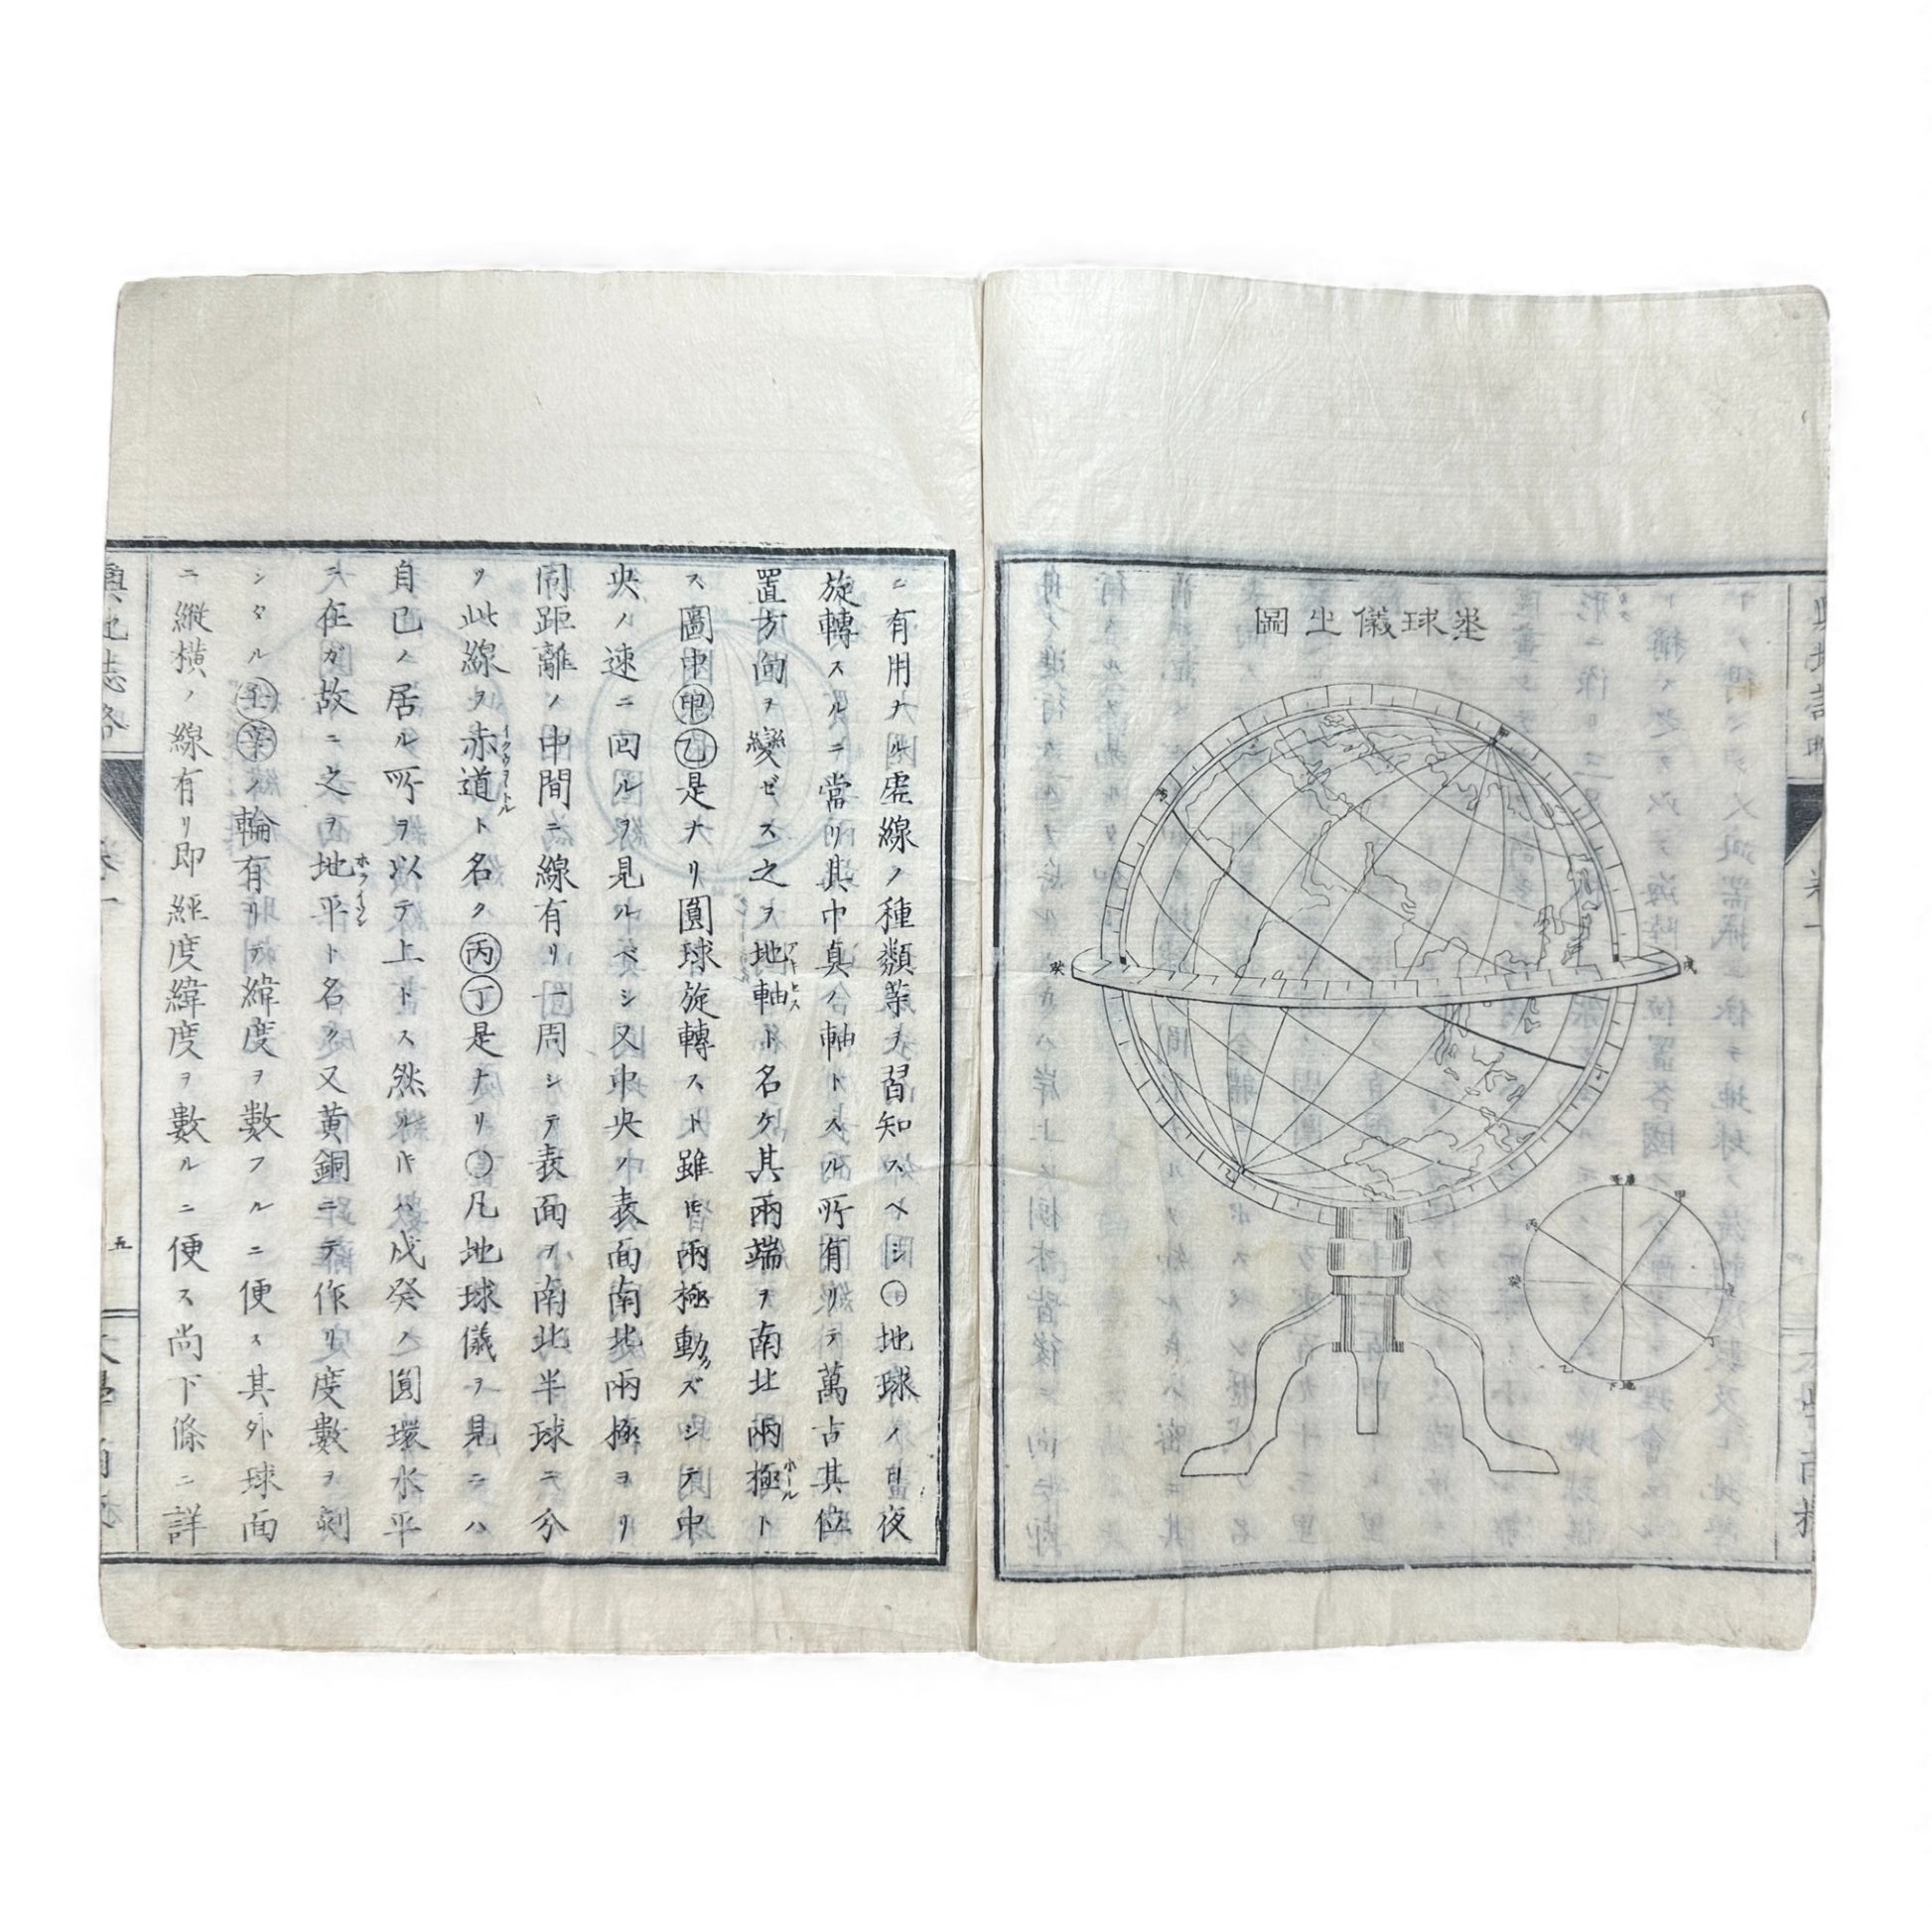 圖之儀球地
甲
丙
癸
戌
丁
乙
甲
丙
癸
丁
乙
ニ有用ナル虚線ノ種類等ヲ習知スベシ○地球ノ日夜
旋轉スルニ當リ其中真ノ軸トスル所有リテ萬古其位
置方向ヲ變ゼス之ヲ地軸ト名ケ其兩端ヲ南北兩極ト
アキセス
ポール
ス圖中甲乙是ナリ圓球旋轉スト雖𪜈兩極動カズシテ中
央ノ速ニ回ルヲ見ルベシ又中央ノ表面南北兩極ヨリ
同距離ノ中間ニ線有リ一周シテ表面ヲ南北半球ニ分
ツ此線ヲ赤道ト名ク丙丁是ナリ○凡地球儀ヲ見ニハ
イクワートル
自己ノ居ル所ヲ以テ上トス然ル𪜈ハ戌癸ノ圓環水平
ニ在ガ故ニ之ヲ地平ト名ク又黄銅ニテ作リ度數ヲ刻
ホライゾン
シタル壬辛輪有リテ緯度ヲ數フルニ便ス其外球面
ニ縱橫ノ線有リ即經度緯度ヲ數ルニ便ス尚下條ニ詳
輿地誌略
卷一
五
大學南校